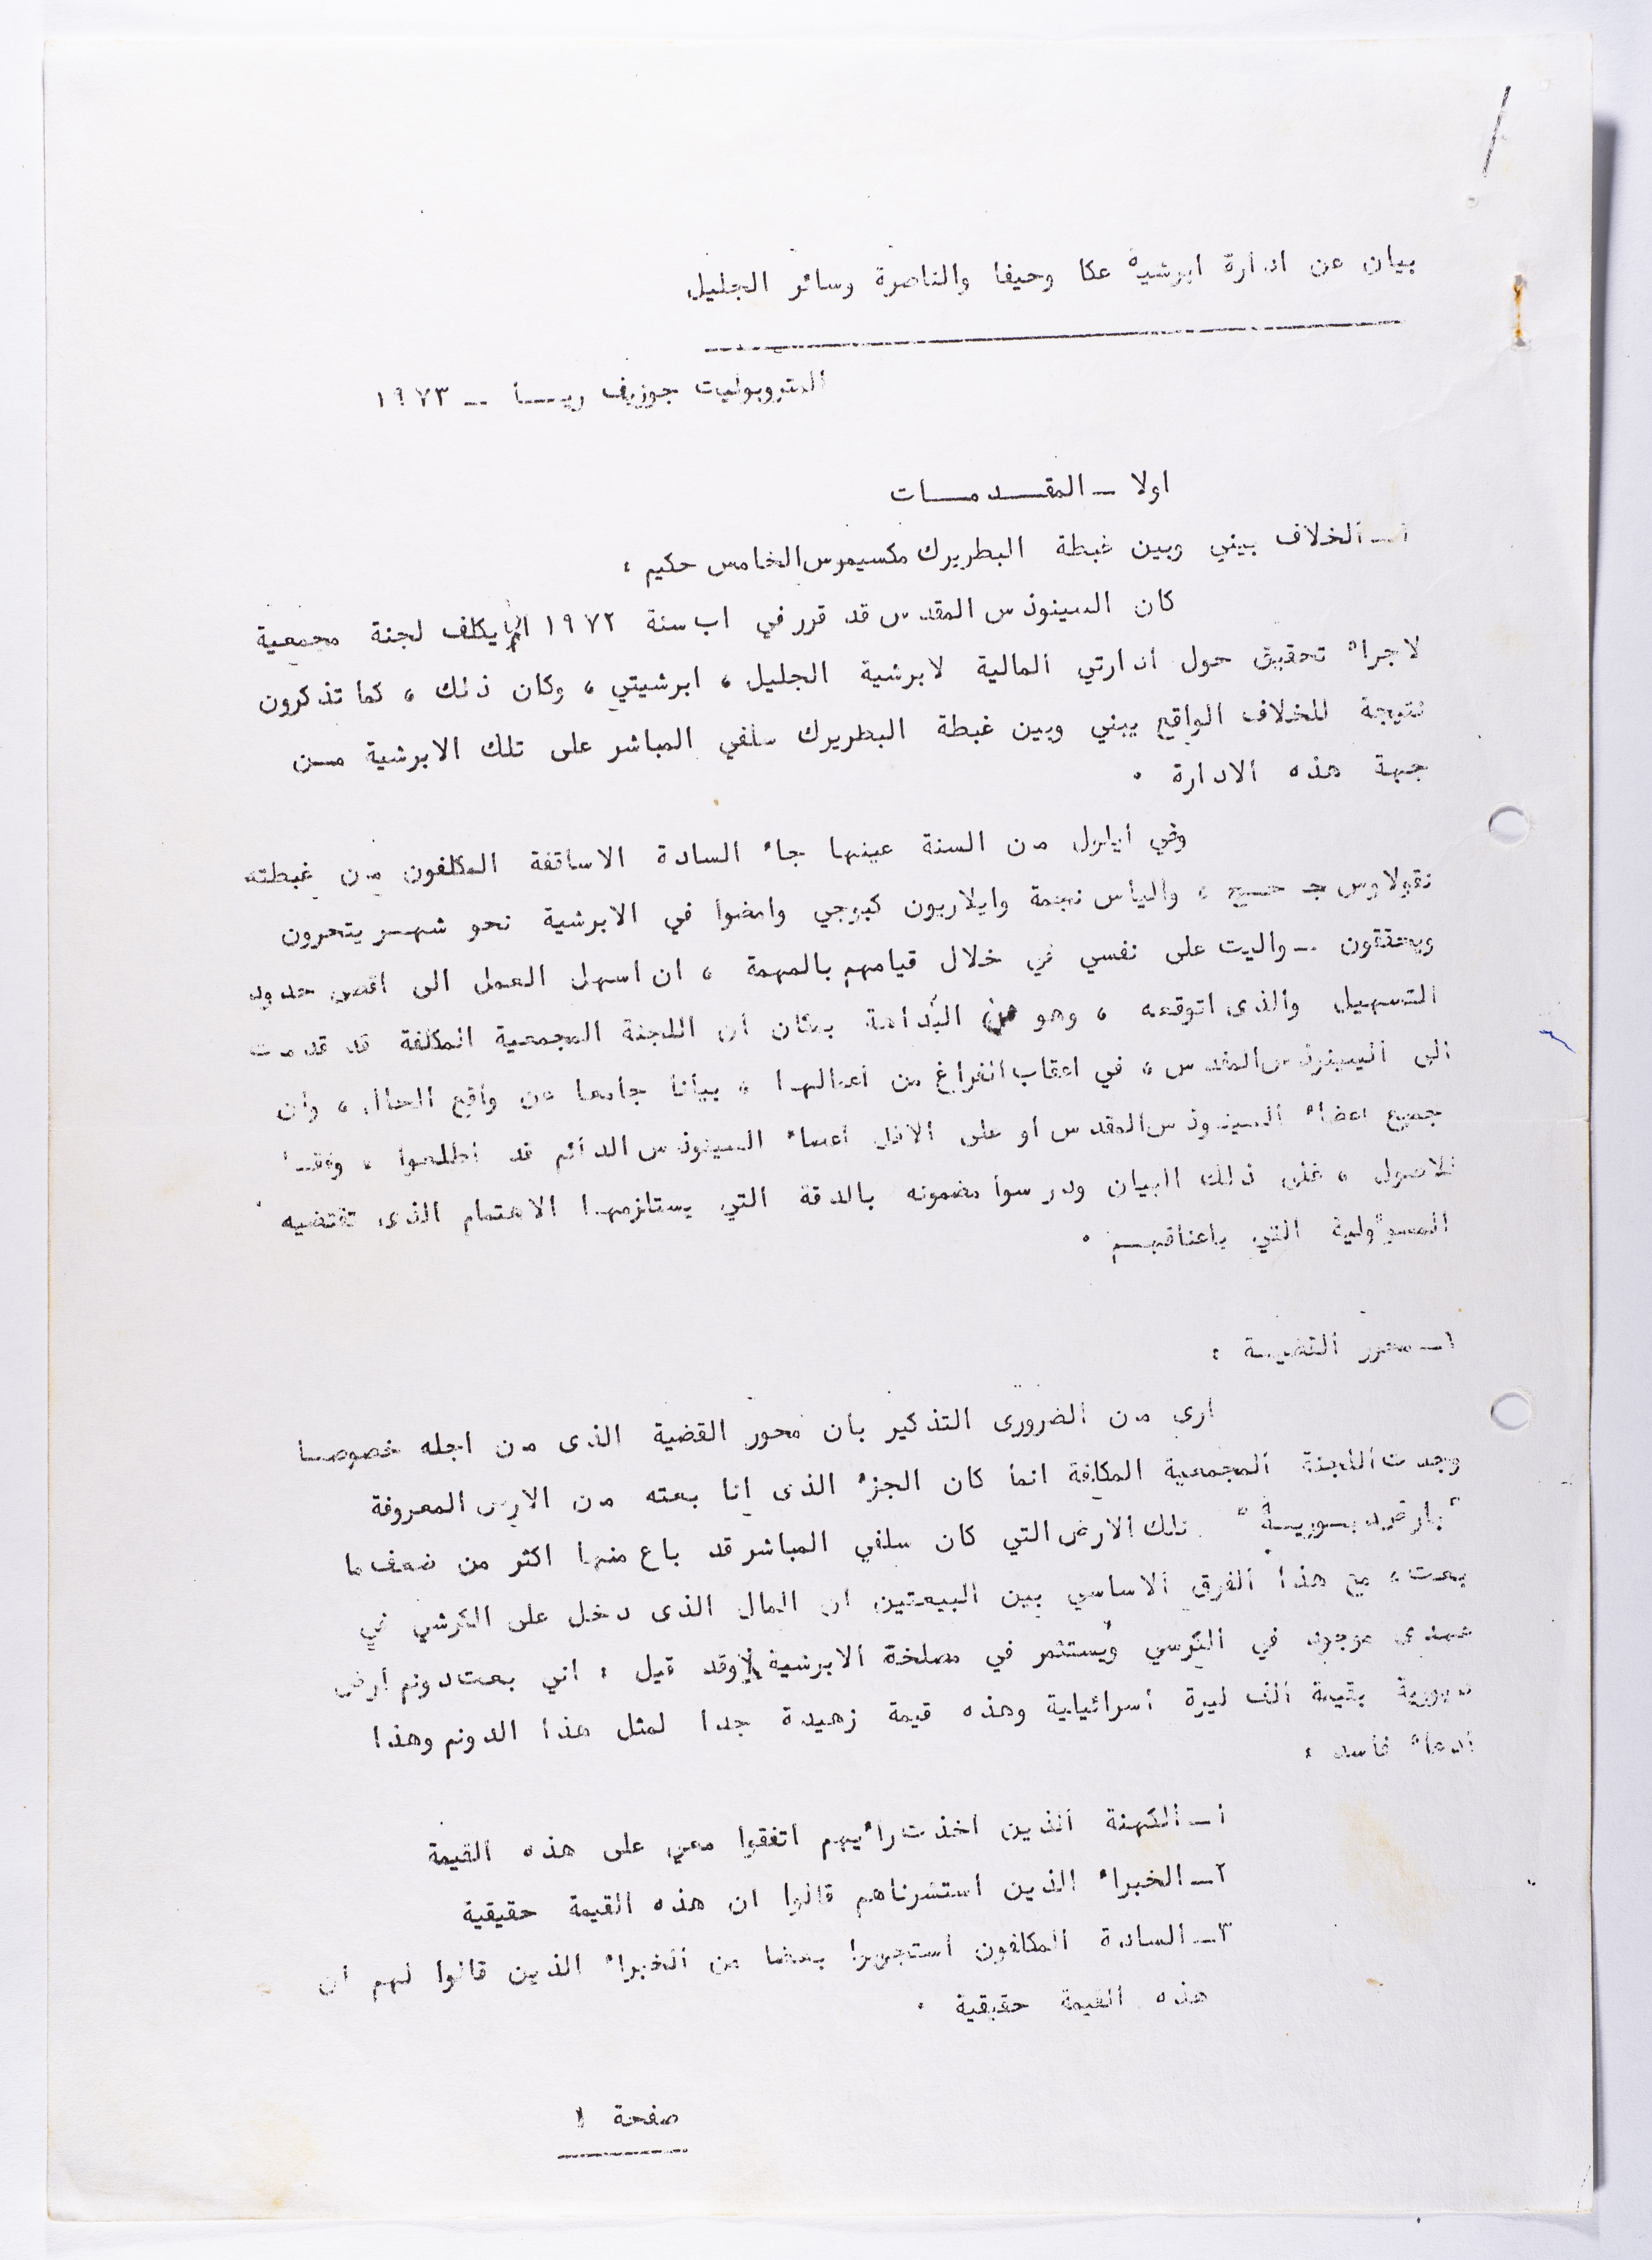 بيان عن ادارة ابرشية عكا وحيفا والناصرة وسائر الجليل
المتروبوليت جوزيف ريــا -- ١٩٧٣
اولا - المقــدمــات
أ- الخلاف بيني وبين غبطة البطريرك مكسيموس الخامس حكيم :
كان السينوذس المقدس قد قرر في اب سنة ١٩٧٢ ان يكلف لجنة مجمعية
لاجراء تحقيق حول ادارتي المالية لابرشية الجليل ، ابرشيتي ، وكان ذلك ، كما تذكرون
نتيجة للخلاف الواقع بيني وبين غبطة البطريرك سلفي المباشر على تلك الابرشية مــن
جهة هذه الادارة .
وفي أيلول من السنة عينها جاء السادة الاساقفة المكلفون من غبطته
نقولاوس حــاج ، والياس نجمة وايلاريون كبوجي وامضوا في الابرشية نحو شهــر يتحرون
ويحققون -- واليت على نفسي في خلال قيامهم بالمهمة ، ان اسهل العمل الى اقصى حدود
التسهيل والذى اتوقعه ، وهو من البداهة بمكان ان اللجنة المجمعية المكلفة قد قدمت
الى السينوذس المقدس ، في اعقاب الفراغ من اعمالها ، بيانا جامعا عن واقع الحال ، وان
جميع اعضاء السينوذس المقدس أو على الاقل أعضاء السينوذس الدائم قد اطلعوا ، وفقــا
للاصول ، على ذلك البيان ودرسوا مضمونه بالدقة التي يستلزمها الاهتمام الذى تقتضيه
المسؤولية التي باعناقهــم .
١- محور القضيــة :
ارى من الضرورى التذكير بأن محور القضية الذى من اجله خصوصــا
وجدت اللجنة المجمعية المكلفة انما كان الجزء الذى انا بعته من الارض المعروفة
" بارض دبــوريــة " تلك الارض التي كان سلفي المباشر قد باع منها اكثر من ضعف ما
بعت ، مع هذا الفرق الاساسي بين البيعتين ان المال الذى دخل على الكرسي في
عهدى موجود في الكرسي ويستثمر في مصلحة الابرشية وقد قيل : اني بعت دونم أرض
دبورية بقيمة الف ليرة اسرائيلية وهذه قيمة زهيدة جدا لمثل هذا الدونم وهذا
ادعاء فاسد :
١- الكهنة الذين اخذت رأيهم اتفقوا معي على هذه القيمة
٢- الخبراء الذين استشرناهم قالوا ان هذه القيمة حقيقية
٣- السادة المكلفون استجوبوا بعضا من الخبراء الذين قالوا لهم ان
هذه القيمة حقيقية .
صفحة ١